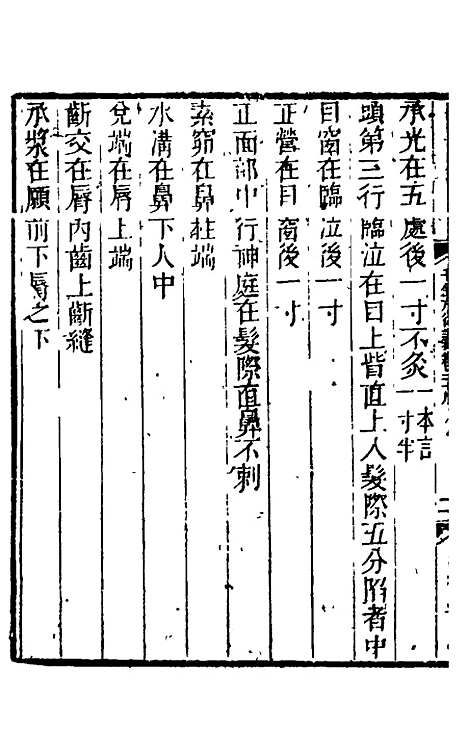 承光在五處後一寸不灸一本言一寸半
頭第三行臨泣在目上眥直上入髮際五分陷者中
目窗在臨泣後一寸
正營在目窗後一寸
正面部中行神庭在髮際直鼻不刺
素窌在鼻柱端
水溝在鼻下人中
兌端在脣上端
齗交在脣內齒上齗縫
承漿在頤前下脣之下